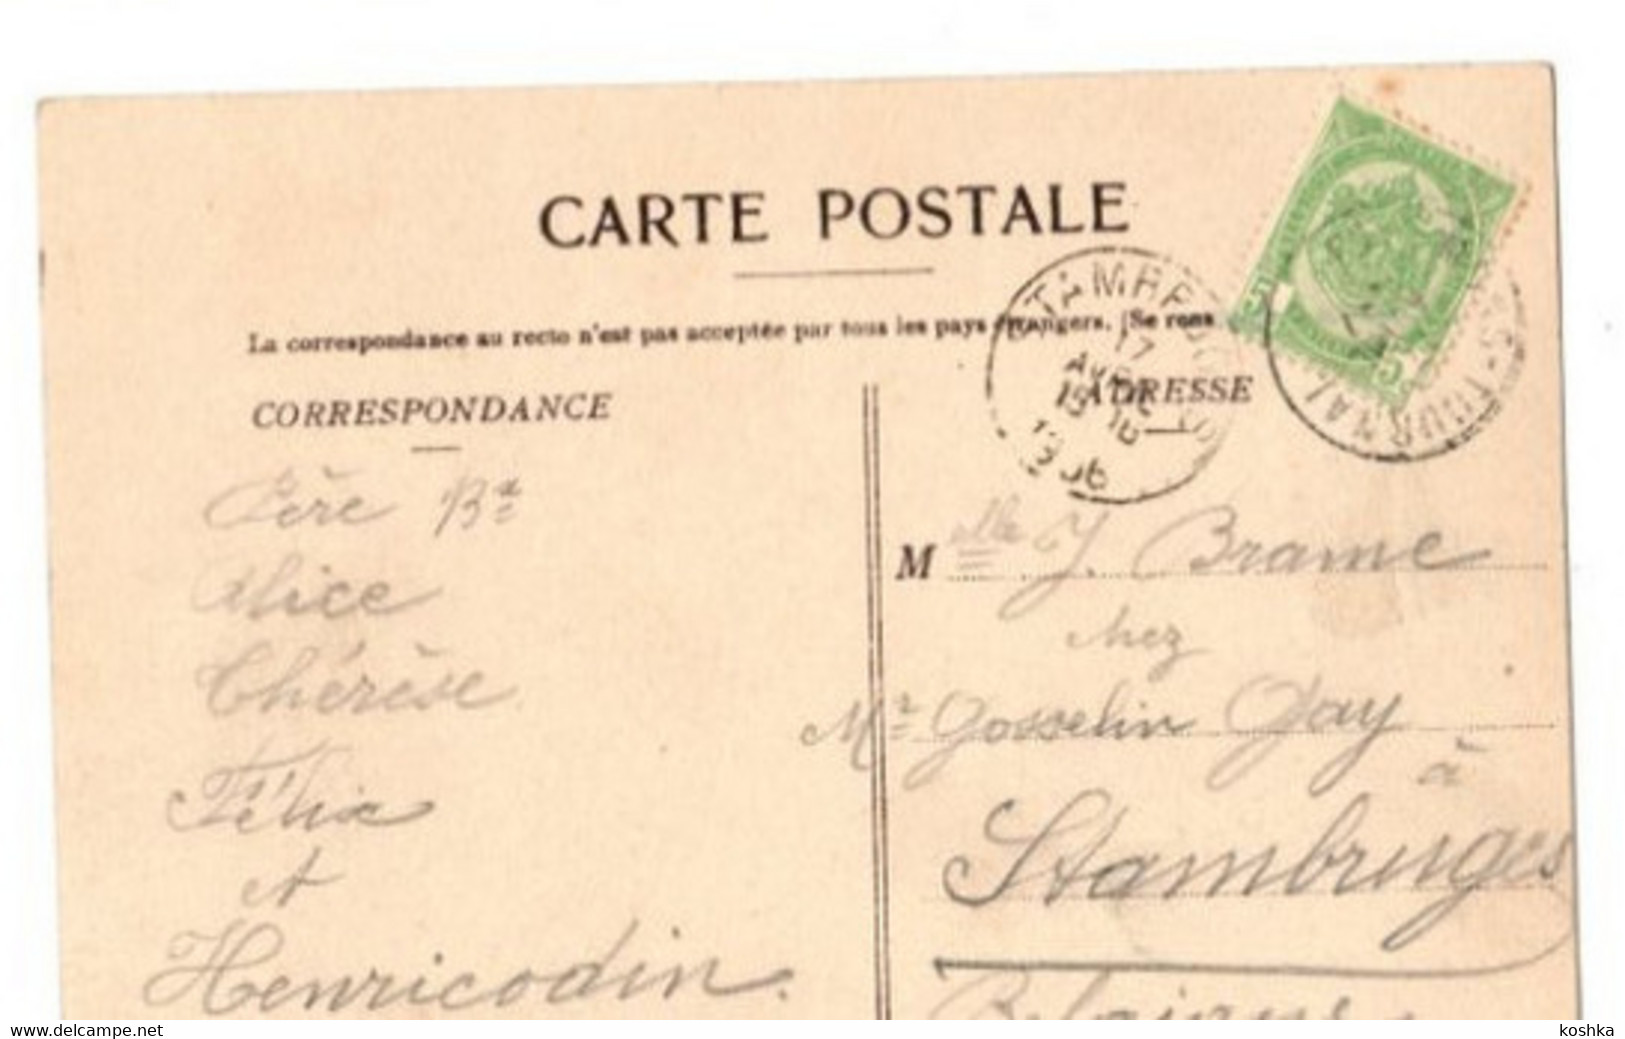 CARTE POSTALE
La correspondance au recto n'est pas acceptée par tous les pays étrangers. (Se rens
CORRESPONDANCE
Père Bx
Alice
Thérèse
Félix
et
Henricodin.
ADRESSE
17
1906
TOURNAI
5
5
Melle J. Brame
chez
Mr Gosselin Gay
à
Stambruges
www.delcampe.net
koshka